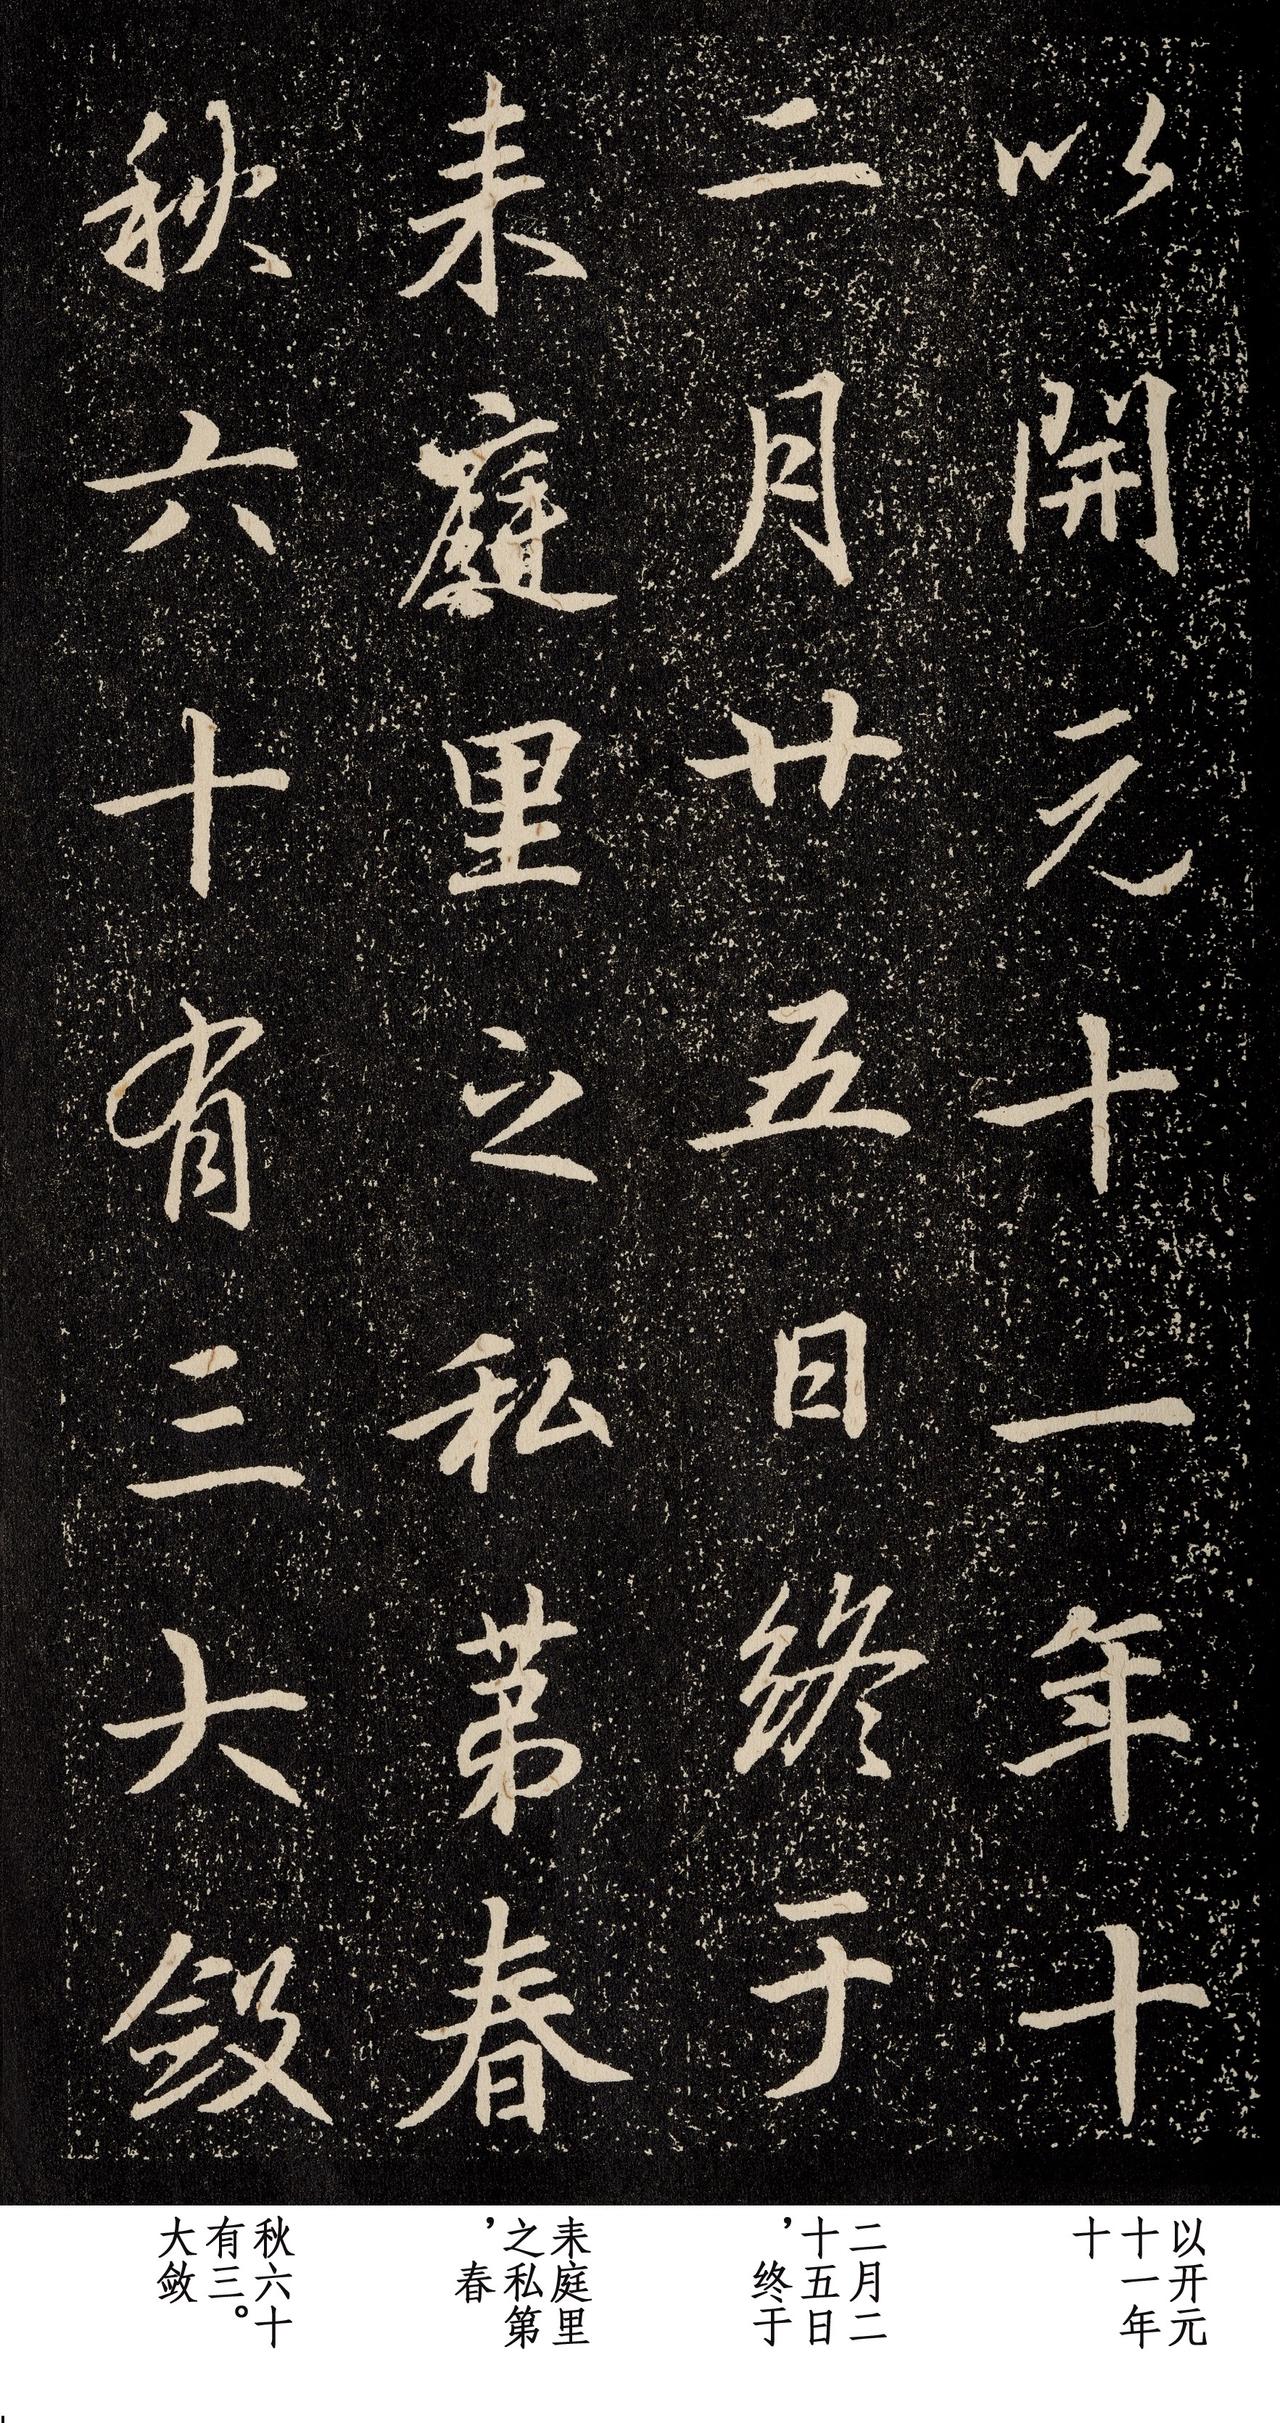 以開元十一年十
二月廿五日終于
耒庭里之私第春
秋六十有三大斂
以开元
十一年
十
二月二
十五日
，终于
耒庭里
之私第
，春
秋六十
有三。
大敛